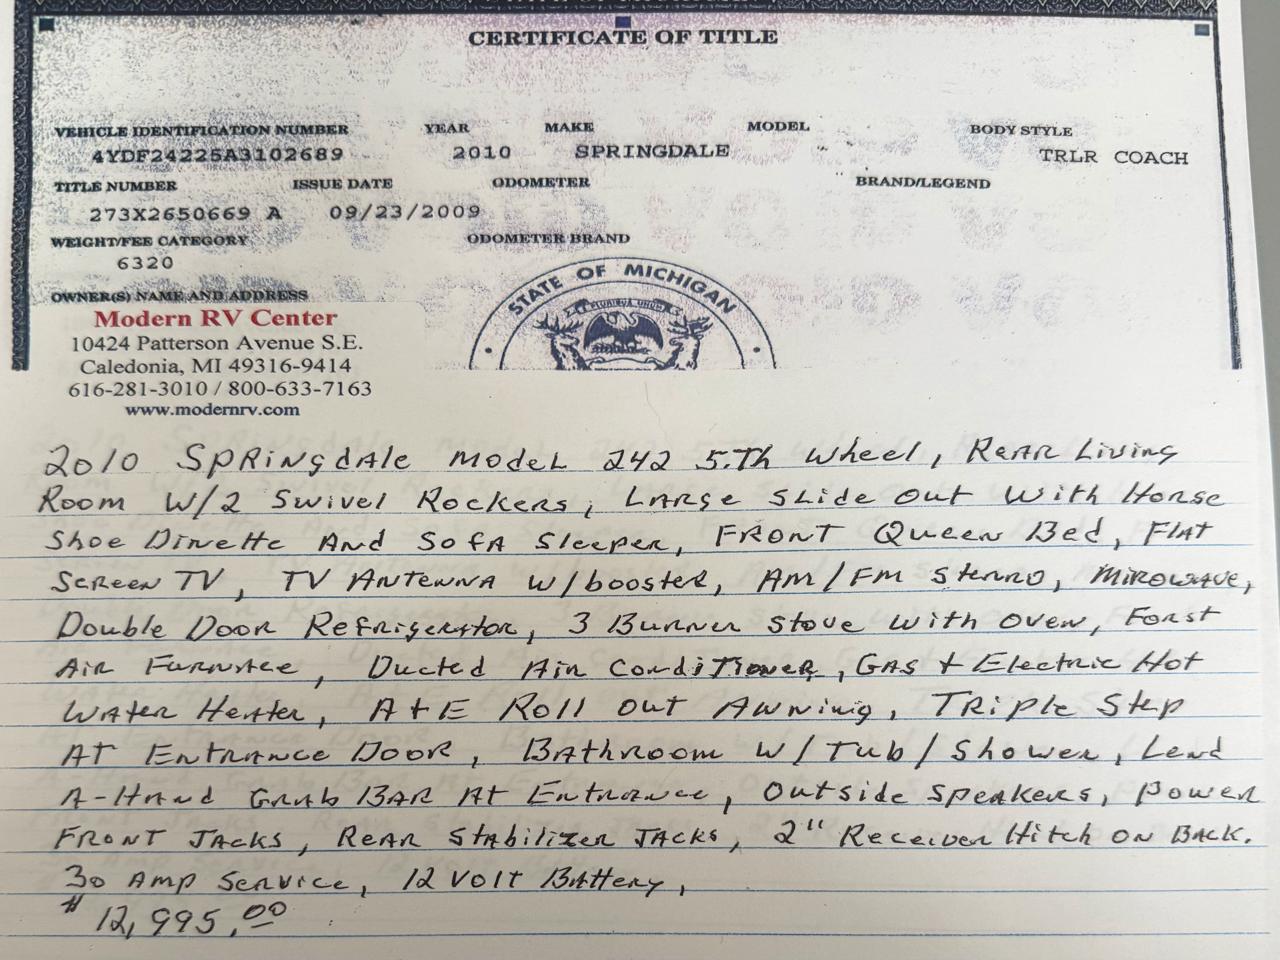 CERTIFICATE OF TITLE
VEHICLE IDENTIFICATION NUMBER YEAR MAKE MODEL BODY STYLE
4YDF24225A3102689 2010 SPRINGDALE TRLR COACH
TITLE NUMBER ISSUE DATE ODOMETER BRAND/LEGEND
273X2650669 A 09/23/2009
WEIGHT/FEE CATEGORY ODOMETER BRAND
6320
OWNER(S) NAME AND ADDRESS
STATE OF MICHIGAN
E PLURIBUS UNUM
Modern RV Center
10424 Patterson Avenue S.E.
Caledonia, MI 49316-9414
616-281-3010 / 800-633-7163
www.modernrv.com
2010 Springdale Model 242 5.Th Wheel, Rear Living
Room W/2 Swivel Rockers, Large Slide Out With Horse
Shoe Dinette And Sofa Sleeper, Front Queen Bed, Flat
Screen TV, TV Antenna W/booster, AM/FM Sterro, Mirowave,
Double Door Refrigerator, 3 Burner Stove With Oven, Forst
Air Furnace, Ducted Air Conditioner, Gas + Electric Hot
Water Heater, A+E Roll Out Awning, Triple Step
At Entrance Door, Bathroom W/Tub/Shower, Lend
A-Hand Grab Bar At Entrance, Outside Speakers, Power
Front Jacks, Rear Stabilizer Jacks, 2" Receiver Hitch On Back.
30 Amp Service, 12 Volt Battery,
$12,995.00